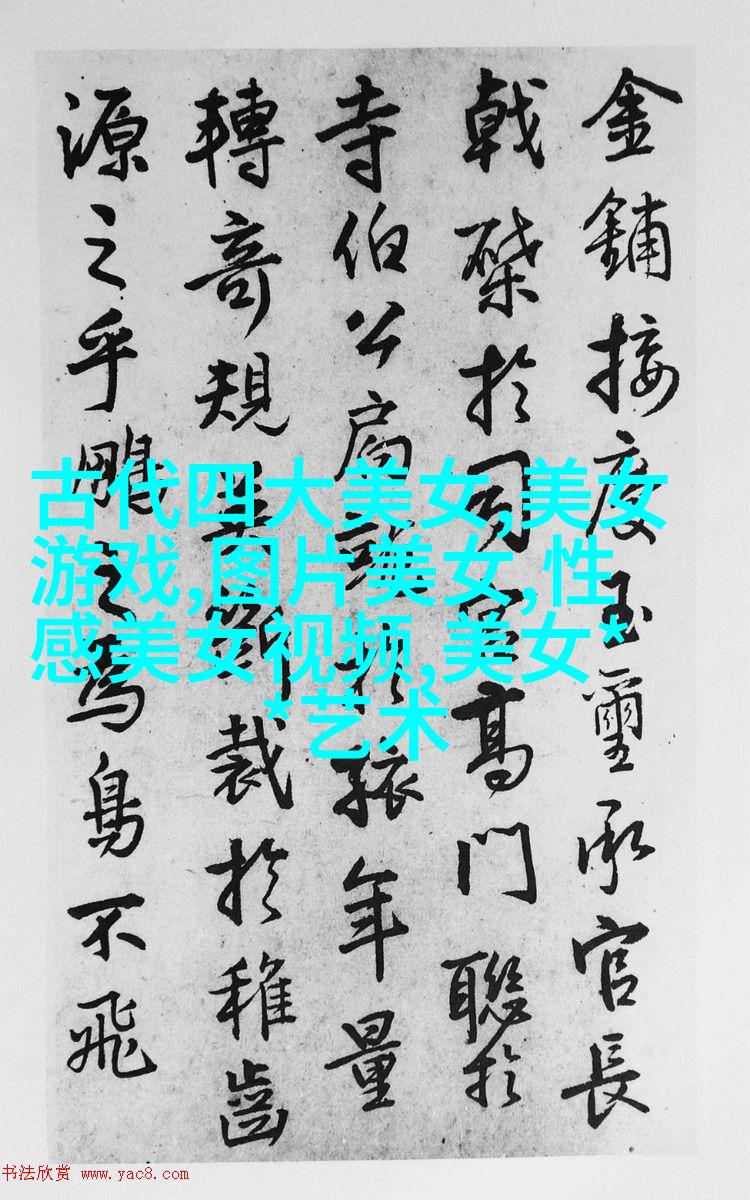 金鋪接慶玉璽承官長
戟棨於高門聯於
寺伯公扃於孩年量
轉奇規斷裁於稚齒
源之乎鵬之為鳥不飛
古代四大美女,美女
游戏,图片美女,性
感美女视频,美女*
*艺术
书法欣赏 www.yac8.com